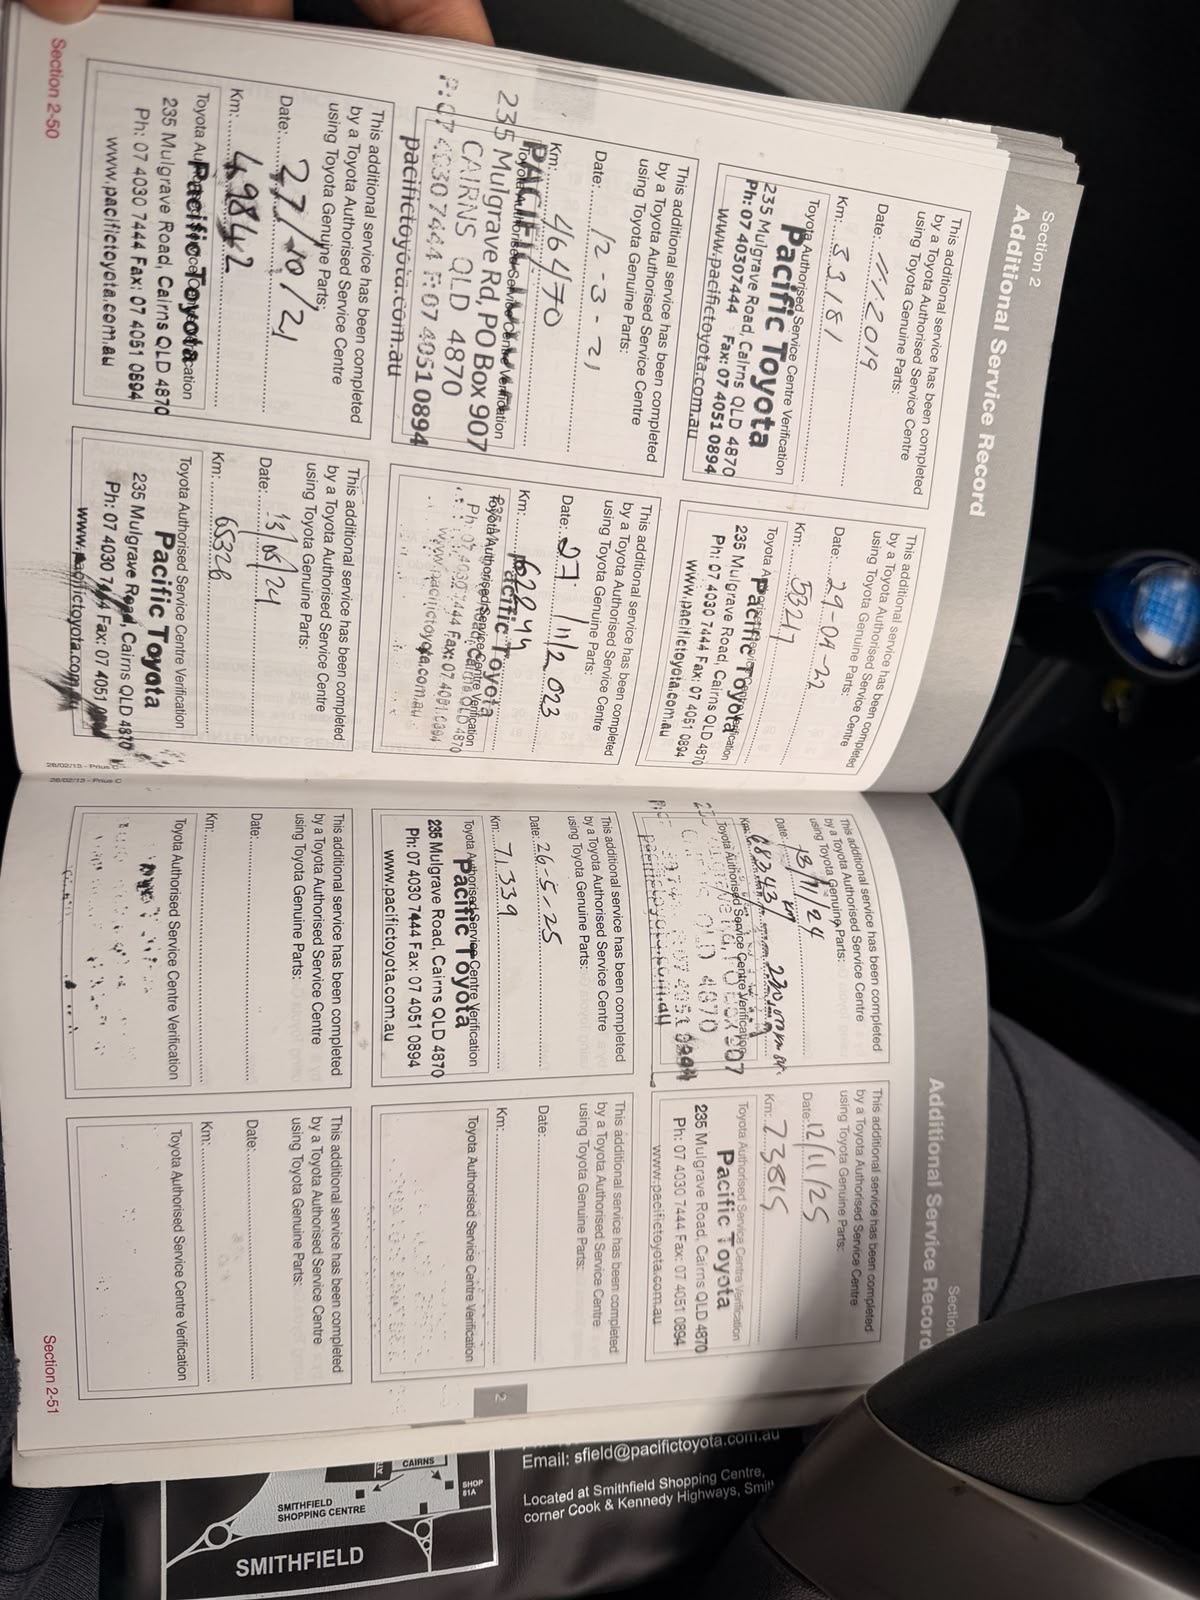 Section 2
Additional Service Record
This additional service has been completed
by a Toyota Authorised Service Centre
using Toyota Genuine Parts:
Date: 2019
Km: 39181
Toyota Authorised Service Centre Verification
Pacific Toyota
235 Mulgrave Road, Cairns QLD 4870
Ph: 07 40307444 Fax: 07 4051 0894
www.pacifictoyota.com.au
This additional service has been completed
by a Toyota Authorised Service Centre
using Toyota Genuine Parts:
Date: 29-04-22
Km: 53217
Pacific Toyota
235 Mulgrave Road, Cairns QLD 4870
Ph: 07 4030 7444 Fax: 07 4051 0894
www.pacifictoyota.com.au
This additional service has been completed
by a Toyota Authorised Service Centre
using Toyota Genuine Parts:
Date: 12-3-21
Km: 46470
Toyota Authorised Service Centre Verification
235 Mulgrave Rd, PO Box 907
CAIRNS QLD 4870
P: 07 4030 7444 F: 07 4051 0894
pacifictoyota.com.au
This additional service has been completed
by a Toyota Authorised Service Centre
using Toyota Genuine Parts:
Date: 27/11/2023
Km: 62944
Toyota Authorised Service Centre Verification
Pacific Toyota
Ph: 07 4030 7444 Fax: 07 4051 0894
www.pacifictoyota.com.au
This additional service has been completed
by a Toyota Authorised Service Centre
using Toyota Genuine Parts:
Date: 27/10/21
Km: 49842
Pacific Toyota
235 Mulgrave Road, Cairns QLD 4870
Ph: 07 4030 7444 Fax: 07 4051 0894
www.pacifictoyota.com.au
This additional service has been completed
by a Toyota Authorised Service Centre
using Toyota Genuine Parts:
Date: 13/05/24
Km: 65326
Toyota Authorised Service Centre Verification
Pacific Toyota
235 Mulgrave Road, Cairns QLD 4870
Ph: 07 4030 7444 Fax: 07 4051
www.pacifictoyota.com.au
Section 2-50
26/02/13 - Prius C
Section
Additional Service Record
This additional service has been completed
by a Toyota Authorised Service Centre
using Toyota Genuine Parts:
Date: 13/11/24
Km: 68243 km
Toyota Authorised Service Centre Verification
QLD 4870
pacifictoyota.com.au
This additional service has been completed
by a Toyota Authorised Service Centre
using Toyota Genuine Parts:
Date: 12/11/25
Km: 73815
Toyota Authorised Service Centre Verification
Pacific Toyota
235 Mulgrave Road, Cairns QLD 4870
Ph: 07 4030 7444 Fax: 07 4051 0894
www.pacifictoyota.com.au
This additional service has been completed
by a Toyota Authorised Service Centre
using Toyota Genuine Parts:
Date: 26-5-25
Km: 71339
Toyota Authorised Service Centre Verification
Pacific Toyota
235 Mulgrave Road, Cairns QLD 4870
Ph: 07 4030 7444 Fax: 07 4051 0894
www.pacifictoyota.com.au
This additional service has been completed
by a Toyota Authorised Service Centre
using Toyota Genuine Parts:
Date:
Km:
Toyota Authorised Service Centre Verification
2
This additional service has been completed
by a Toyota Authorised Service Centre
using Toyota Genuine Parts:
Date:
Km:
Toyota Authorised Service Centre Verification
This additional service has been completed
by a Toyota Authorised Service Centre
using Toyota Genuine Parts:
Date:
Km:
Toyota Authorised Service Centre Verification
26/02/13 - Prius C
Section 2-51
Email: sfield@pacifictoyota.com.au
Located at Smithfield Shopping Centre,
corner Cook & Kennedy Highways,
CAIRNS
SHOP
81A
SMITHFIELD
SHOPPING CENTRE
SMITHFIELD